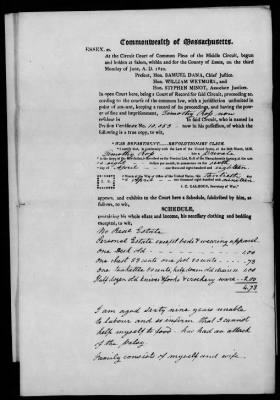 Commonwealth of Massachusetts.
ESSEX, ss.
At the Circuit Court of Common Pleas of the Middle Circuit, begun
and holden at Salem, within and for the County of Essex, on the third
Monday of June, A. D. 1820.
Present, Hon. SAMUEL DANA, Chief Justice.
Hon. WILLIAM WETMORE, and
Hon. STEPHEN MINOT, Associate Justices.
In open Court here, being a Court of Record for said Circuit, proceeding ac-
cording to the course of the common law, with a jurisdiction unlimited in
point of amount, keeping a record of its proceedings, and having the pow-
er of fine and imprisonment, Timothy now
resident in in said Circuit, who is named in
Pension Certificate No. now in his possession, of which the
following is a true copy, to wit,
"WAR DEPARTMENT. REVOLUTIONARY CLAIM.
Timothy
eight
April eighteen
April nineteen
J. C. CALHOUN, Secretary of War."
appears, and exhibits to the Court here a Schedule, subscribed by him, to
wit,
SCHEDULE,
containing his whole estate and income, his necessary clothing and bedding
excepted, to wit,
No Real Estate
Personal Estate except beds & wearing apparel
One Desk old 1.00
One chest 50 cents one pot
One 1.00
Half dozen old knives & forks & crockery ware 2.00
4.73
I am aged sixty nine years unable
to labour and so infirm that I cannot
help myself to food have had an attack
of the Palsy
Family consists of myself and wife